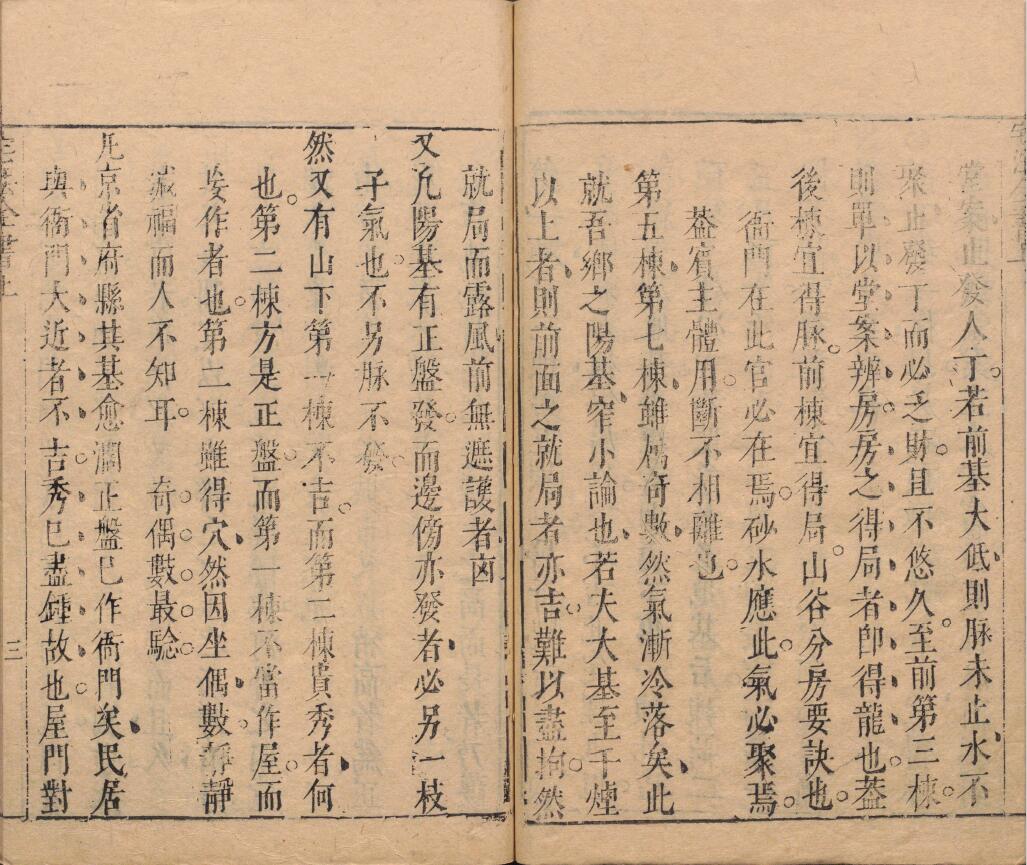 堂案止發人丁若前基大低則脉未止水不
聚止發丁而必乏財且不悠久至前第三棟
則單以堂案辨房房之得局者卽得龍也葢
後棟宜得脉前棟宜得局山谷分房要訣也
衙門在此官必在焉砂水應此氣必聚焉
葢賓主體用斷不相離也
第五棟第七棟雖属奇數然氣漸冷落矣此
就吾鄉之陽基窄小論也若大大基至千煙
以上者則前面之就局者亦吉難以盡拘然
就局而露風前無遮護者凶
又凢陽基有正盤發而邊傍亦發者必另一枝
子氣也不另脉不發
然又有山下第一棟不吉而第二棟貴秀者何
也第二棟方是正盤而第一棟不當作屋而
妄作者也第二棟雖得穴然因坐偶數靜
減福而人不知耳 奇偶數最驗
凢京省府縣其基愈濶正盤巳作衙門矣民居
與衙門大近者不吉秀巳盡鍾故也屋門對
三